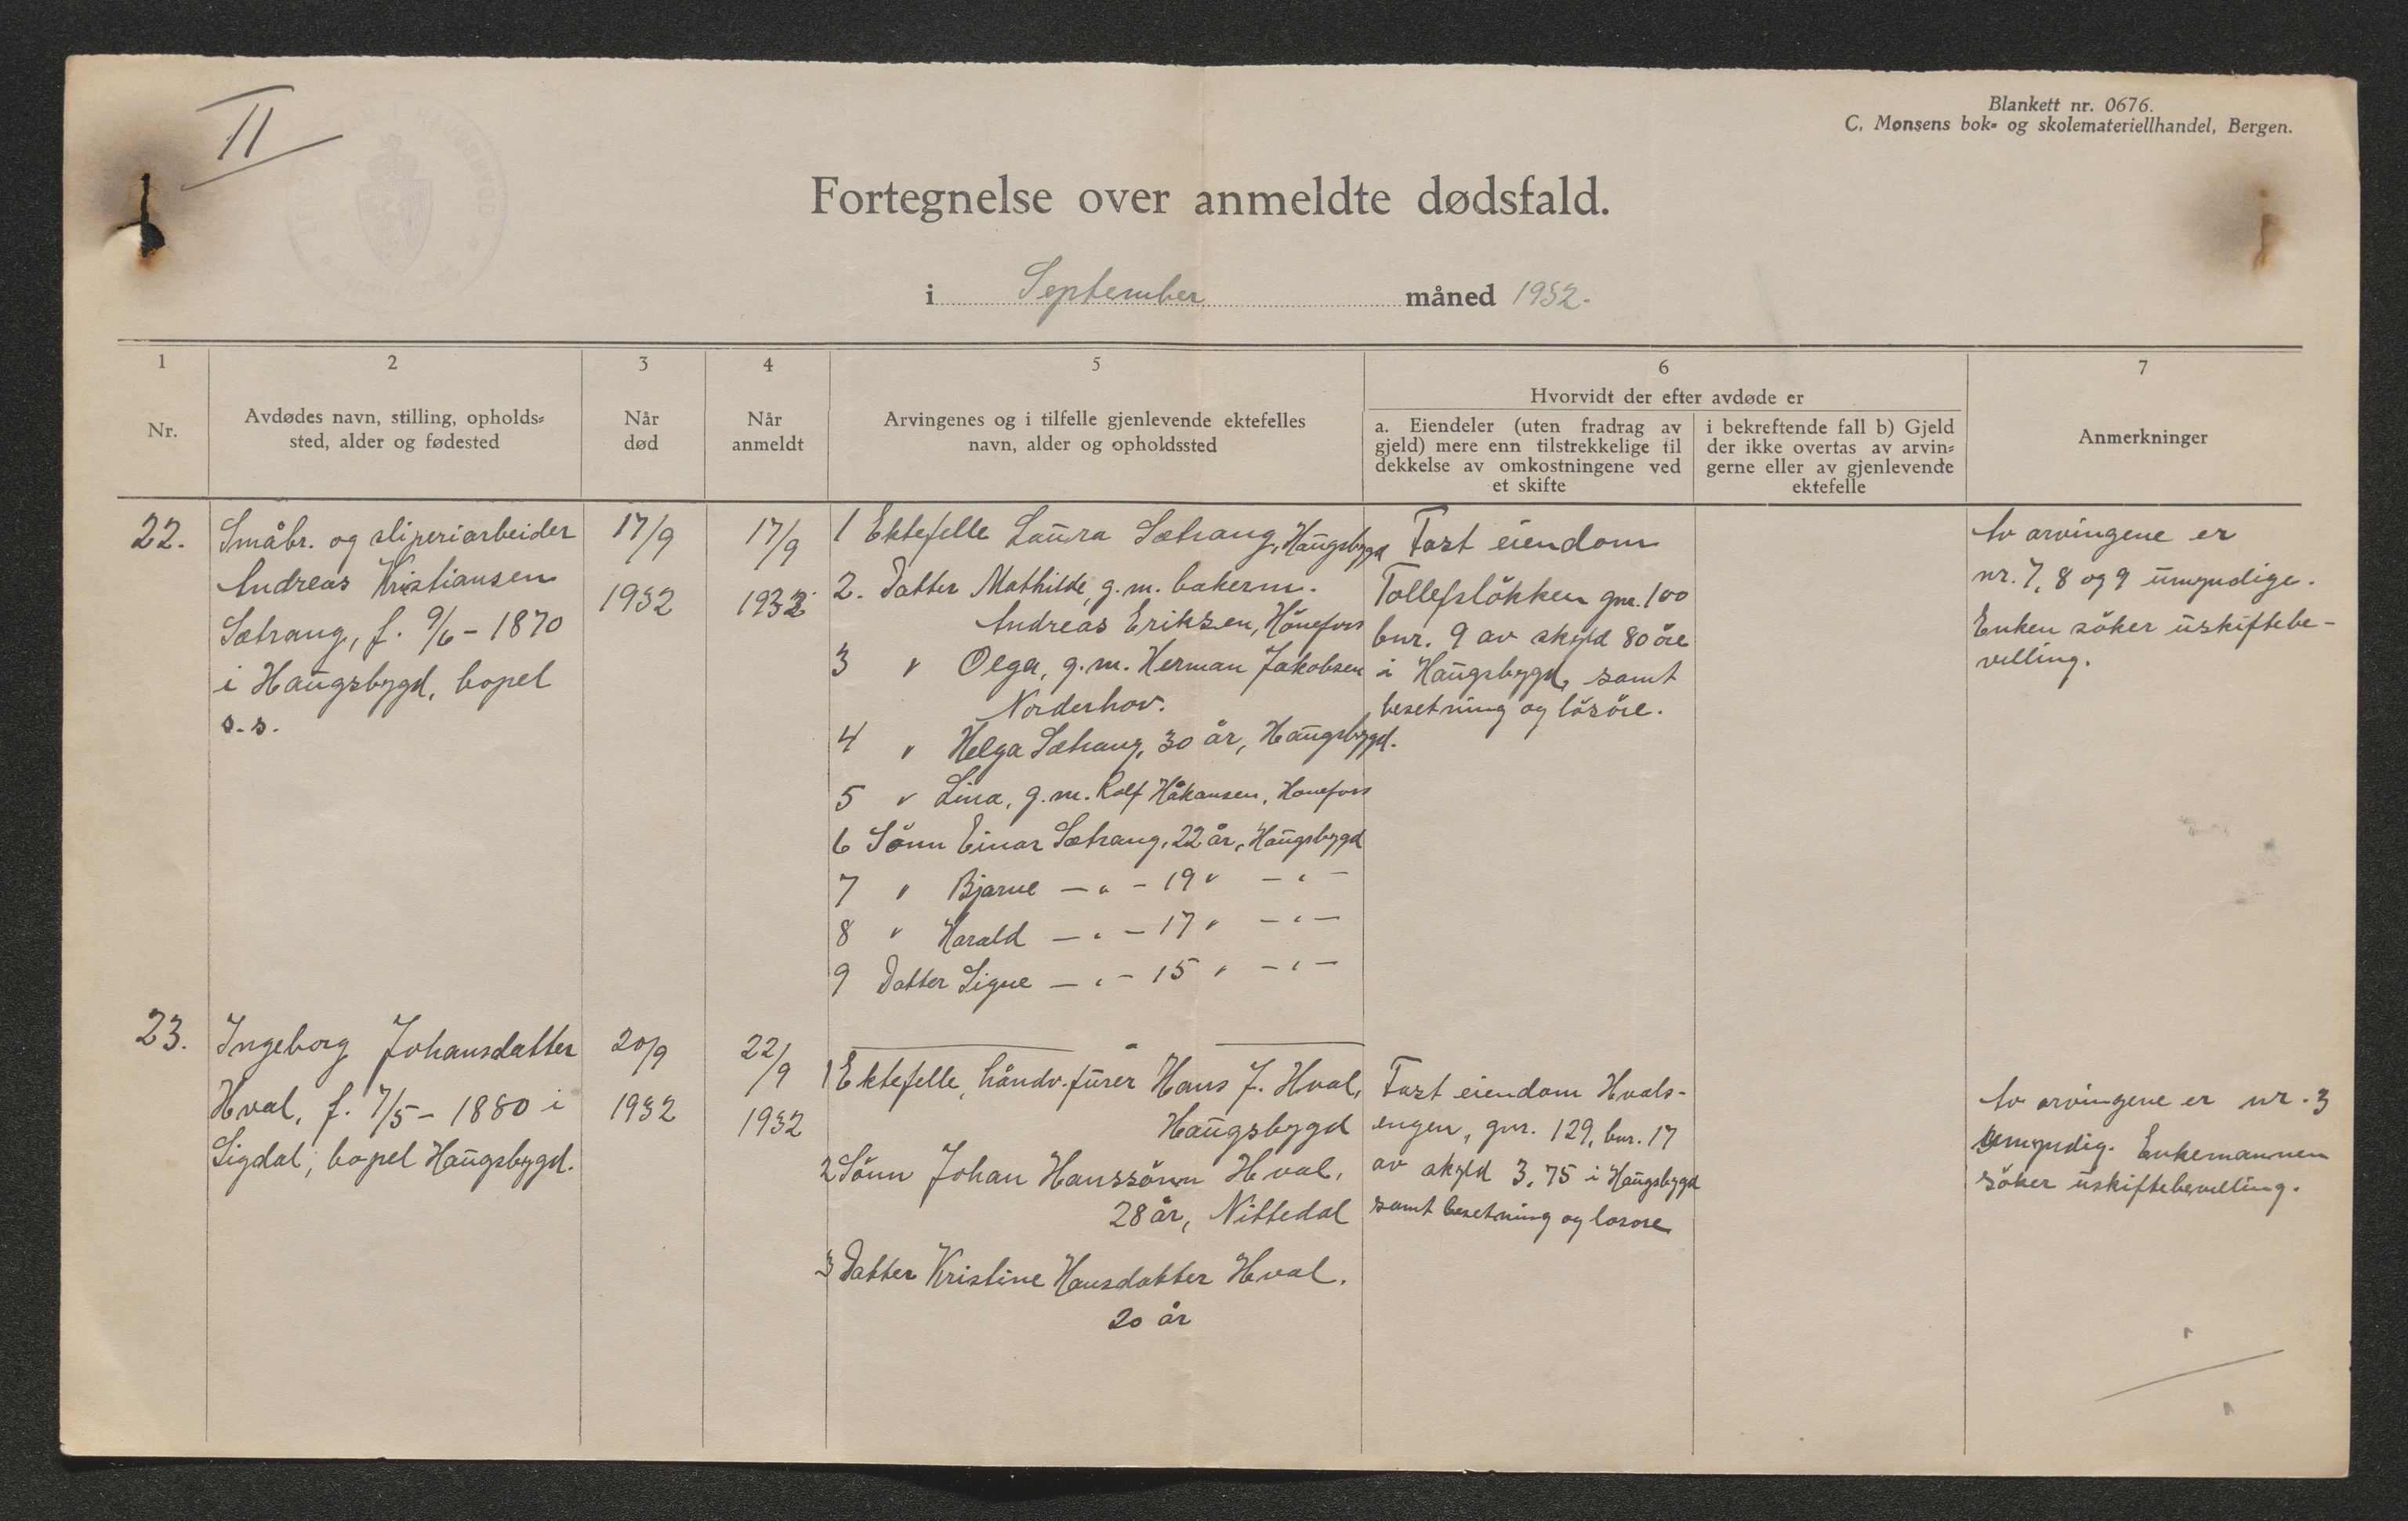 II
Blankett nr. 0676.
C. Monsens bok- og skolemateriellhandel, Bergen.
Fortegnelse over anmeldte dødsfald.
i September måned 1932.
1
Nr.
2
Avdødes navn, stilling, opholds-
sted, alder og fødested
3
Når
død
4
Når
anmeldt
5
Arvingenes og i tilfelle gjenlevende ektefelles
navn, alder og opholdssted
6
Hvorvidt der efter avdøde er
a. Eiendeler (uten fradrag av
gjeld) mere enn tilstrekkelige til
dekkelse av omkostningene ved
et skifte
i bekreftende fall b) Gjeld
der ikke overtas av arvin-
gerne eller av gjenlevende
ektefelle
7
Anmerkninger
22.
Småbr. og sliperiarbeider
Andreas Kristiansen
Sætrang, f. 9/6 - 1870
i Haugsbygd, bopel
s.s.
17/9
1932
17/9
1932
1 Ektefelle Laura Sætrang, Haugsbygd
2. Datter Mathilde, g.m. bakerm.
Andreas Eriksen, Hönefoss
3 " Olga, g.m. Herman Jakobsen
Norderhov.
4 " Helga Sætrang, 30 år, Haugsbygd.
5 " Lina, g.m. Rolf Håkansen, Hönefoss
6 Sönn Einar Sætrang, 22 år, Haugsbygd
7 " Bjarne — " — 19 " — " —
8 " Harald — " — 17 " — " —
9 Datter Signe — " — 15 " — " —
Fast eiendom
Tollefslökken gnr. 100
bnr. 9 av skyld 80 öre
i Haugsbygd, samt
besetning og lösöre.
Av arvingene er
nr. 7, 8 og 9 umyndige.
Enken söker uskiftebe-
villing.
23.
Ingeborg Johansdatter
Hval, f. 7/5 - 1880 i
Sigdal, bopel Haugsbygd.
20/9
1932
22/9
1932
1 Ektefelle, håndv.furer Hans J. Hval,
Haugsbygd
2 Sönn Johan Hanssönn Hval,
28 år, Nittedal
3 Datter Kristine Hansdatter Hval.
20 år
Fast eiendom Hvals-
engen, gnr. 129, bnr. 17
av skyld 3,75 i Haugsbygd
samt besetning og losore
Av arvingene er nr. 3
umyndig. Enkemannen
söker uskiftebevilling.